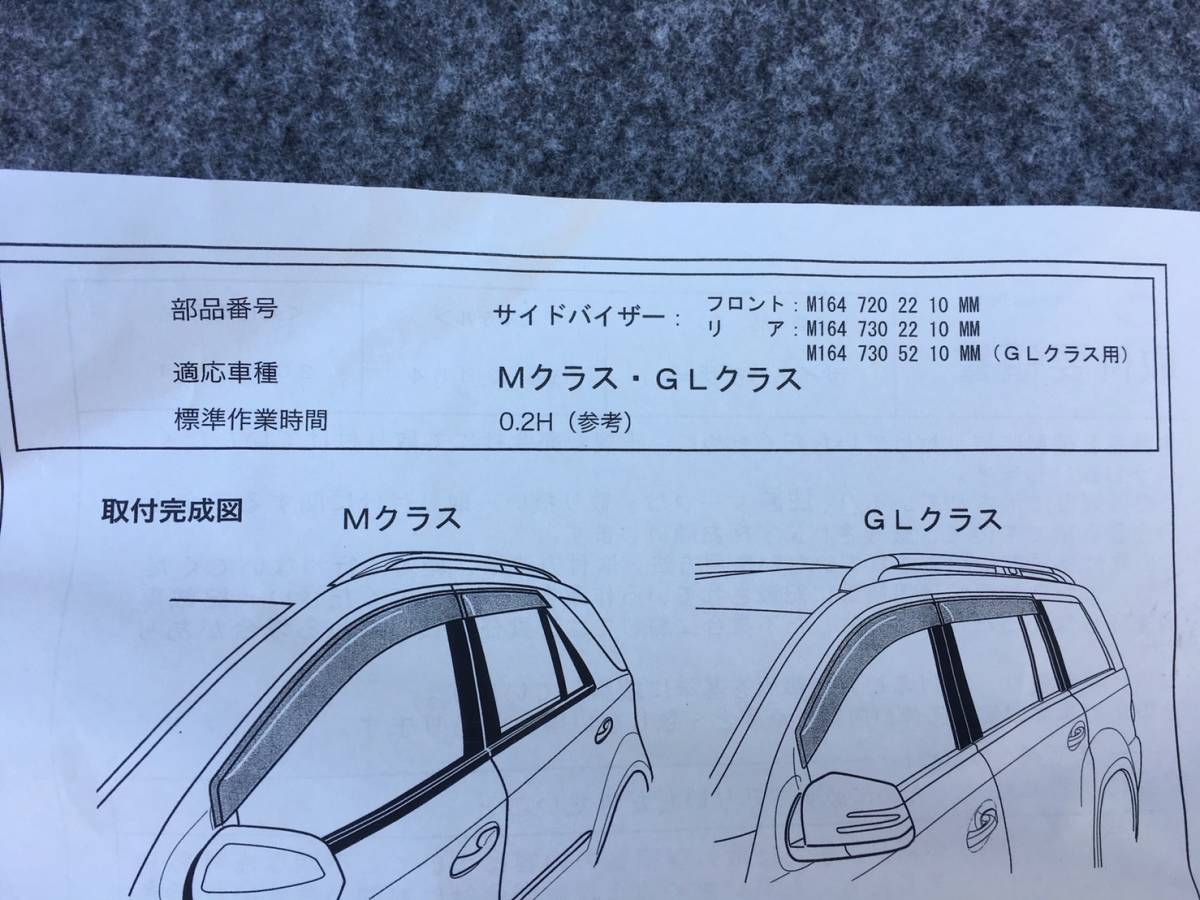 部品番号 サイドバイザー： フロント：M164 720 22 10 MM
リア：M164 730 22 10 MM
M164 730 52 10 MM（GLクラス用）
適応車種 Mクラス・GLクラス
標準作業時間 0.2H（参考）
取付完成図 Mクラス GLクラス